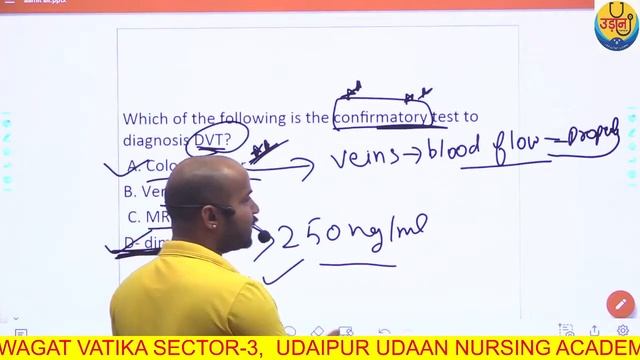 उड़ान
Which of the following is the confirmatory test to
diagnosis DVT?
veins → blood flow
B.
C. MR
D-
250ng/ml
WAGAT VATIKA SECTOR-3, UDAIPUR UDAAN NURSING ACADEM